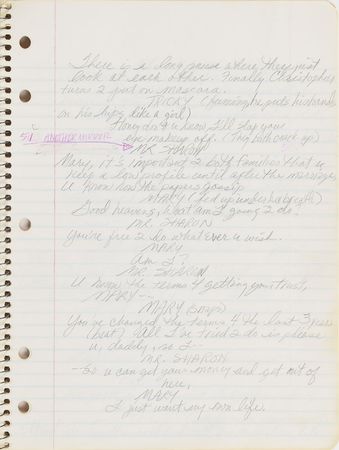 There is a long pause where they just
look at each other. Finally Christopher
turns 2 put on mascara.
TRICKY (Running, he puts his hands
on his hips like a girl)
Honey don't u know I'll slap your
eye makeup off. (They both crack up)
51. ANOTHER MIRROR
MR. SHARON
Mary, it's important 2 both families that u
keep a low profile until after the marriage.
U know how the papers gossip
MARY (Fed up under her breath)
Good heavens, what am I going 2 do.
MR. SHARON
You're free 2 do what ever u wish.
MARY
Am I?
MR. SHARON
U know the terms 4 getting your trust,
MARY--
MARY
You've changed the terms 4 the last 3 years
(beat) All I've tried 2 do is please
u, daddy, so I--
MR. SHARON
--So u can get your money and get out of
here,
MARY
I just want my own life.